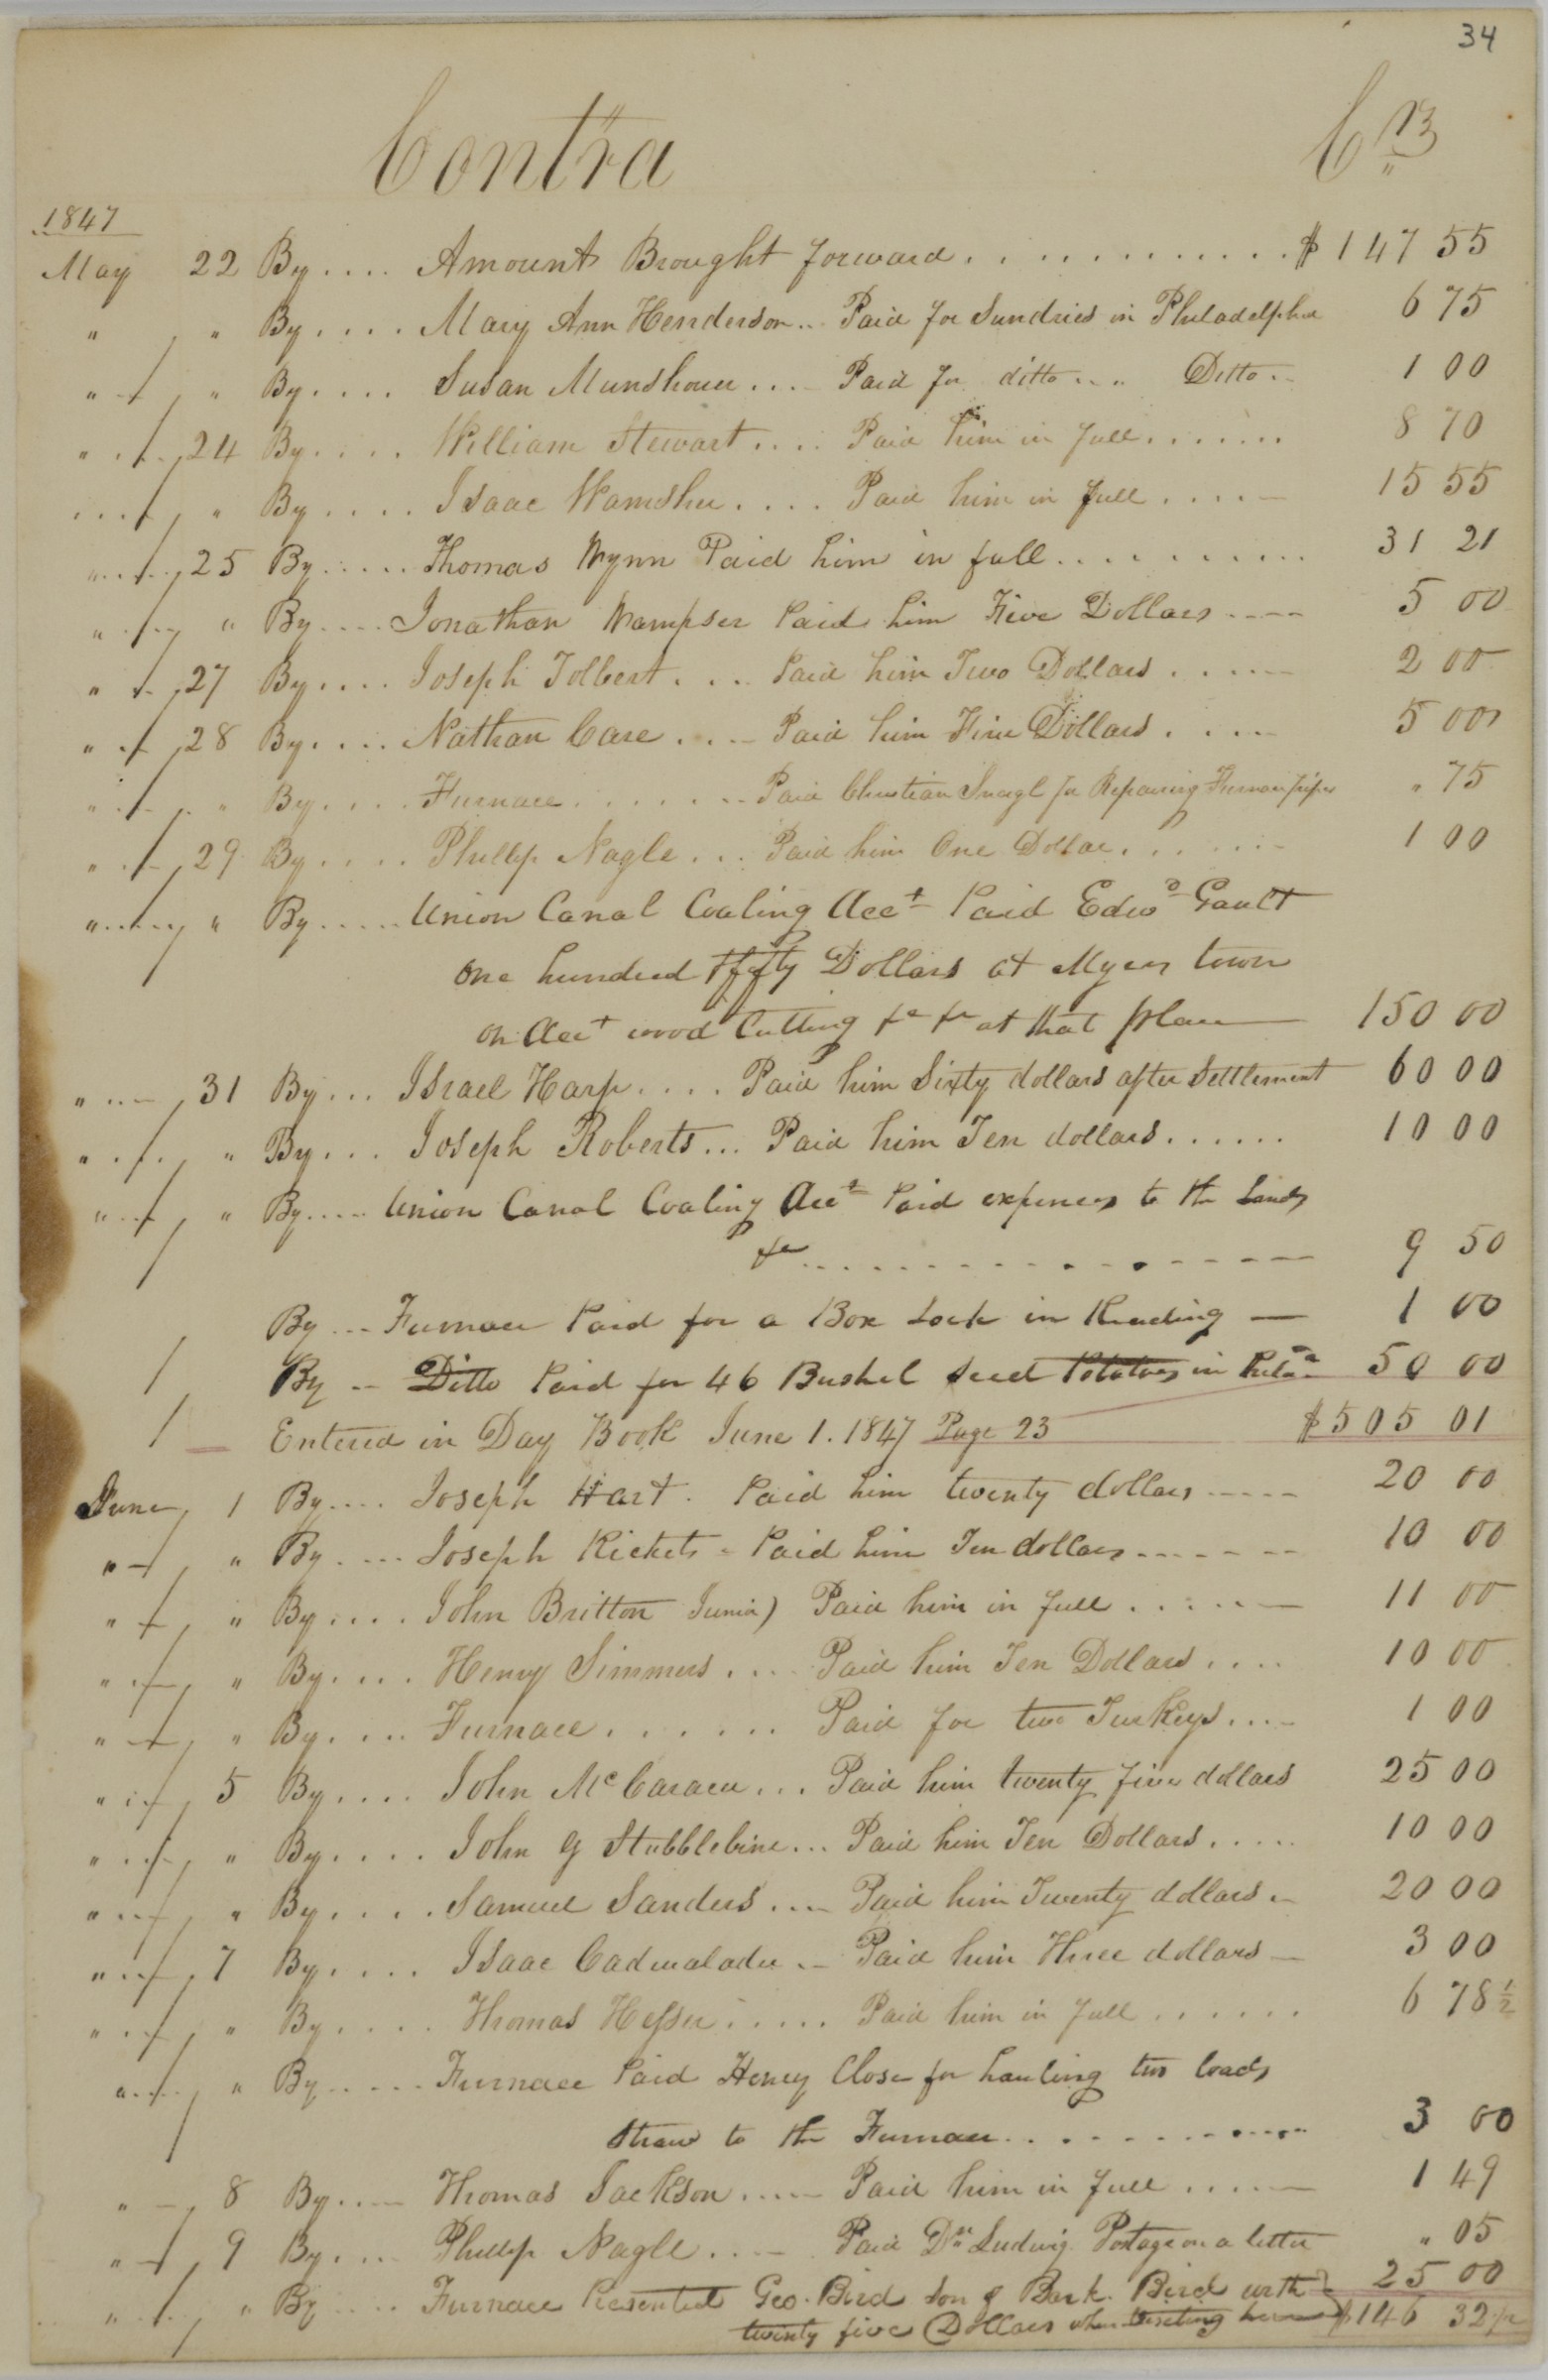 34
Contra Cr
1847
May 22 By .... Amount Brought forward ............ $147 55
" " By .... Mary Ann Henderson .. Paid for Sundries in Philadelphia 6 75
" " By .... Susan Munshower .... Paid for ditto .... Ditto .. 1 00
" 24 By .... William Stewart .... Paid him in full ....... 8 70
" " By .... Isaac Wamsher .... Paid him in full ..... 15 55
" 25 By ..... Thomas Wynn Paid him in full .......... 31 21
" " By .... Jonathan Wampser Paid him Five Dollars .... 5 00
" 27 By .... Joseph Tolbert .... Paid him Two Dollars ..... 2 00
" 28 By .... Nathan Care .... Paid him Five Dollars ..... 5 00
" " By .... Furnace ....... Paid Christian for Repairing Furnace pipes " 75
" 29 By .... Phillip Nagle ... Paid him One Dollar ...... 1 00
" " By ..... Union Canal Coaling Acct Paid Edwd Gault
One hundred fifty Dollars at Myers town
on Acct wood Cutting &c &c at that place 150 00
" 31 By ... Israel Harp .... Paid him Sixty dollars after Settlement 60 00
" " By ... Joseph Roberts ... Paid him Ten dollars ...... 10 00
" " By .... Union Canal Coaling Acct Paid expenses to the Lands
&c ................ 9 50
By ... Furnace Paid for a Box Lock in Reading — 1 00
By -- Ditto Paid for 46 Bushel Seed Potatoes in 50 00
Entered in Day Book June 1. 1847 Page 23 $505 01
June 1 By .... Joseph Hart . Paid him twenty dollars ..... 20 00
" " By .... Joseph Rickets - Paid him Ten dollars ....... 10 00
" " By .... John Britton Junior) Paid him in full ...... 11 00
" " By .... Henry Simmers .... Paid him Ten Dollars .... 10 00
" " By .... Furnace ...... Paid for two Turkeys .... 1 00
" 5 By .... John McCaraer ... Paid him twenty five dollars 25 00
" " By .... John G Stubblebine ... Paid him Ten Dollars ..... 10 00
" " By .... Samuel Sanders .... Paid him Twenty dollars .. 20 00
" 7 By .... Isaac Cadwalader .. Paid him Three dollars — 3 00
" " By .... Thomas Hesser ..... Paid him in full ...... 6 78½
" " By ..... Furnace Paid Henry Close for hauling two loads
Straw to the Furnace ............ 3 00
" 8 By .... Thomas Jackson .... Paid him in full ..... 1 49
" 9 By .... Phillip Nagle .... Paid Dr Ludwig Postage on a letter " 05
" " By .... Furnace Presented Geo. Bird son of Bird with 25 00
twenty five Dollars when visiting here $146 32½